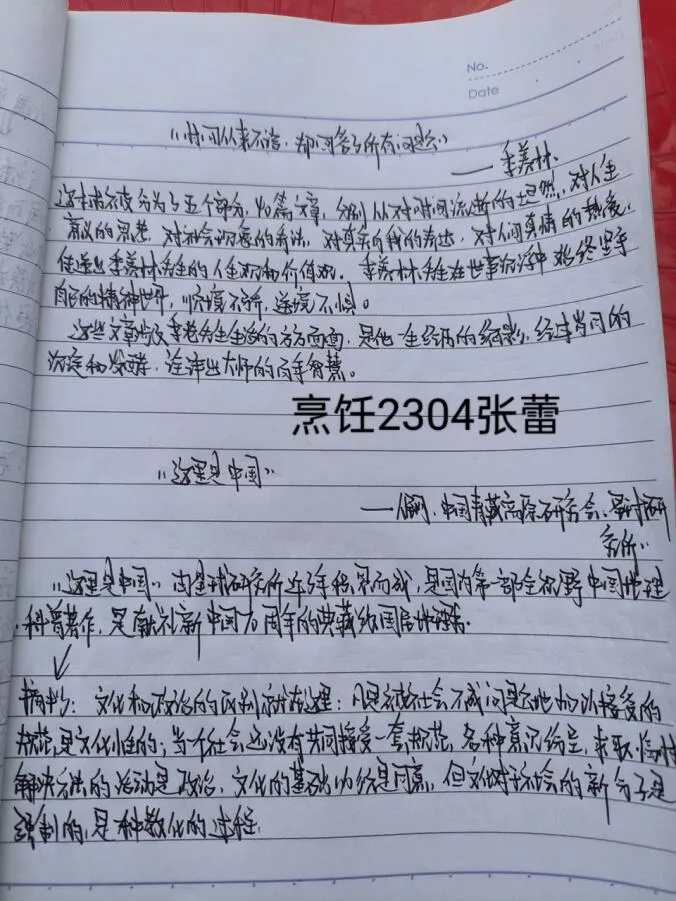 No.
Date
《时间从来不语,却回答了所有问题》
——季羡林
这本书被分为了五个部分,40篇文章,分别从对时间流逝的坦然,对人生
意义的思考,对社会沉底的看法,对真实自我的表达,对人间真情的热爱,
传递出季羡林先生的人生观和价值观.季羡林先生在世事沉浮中始终坚守
自己的精神世界,顺境不骄,逆境不惧。
这些文章涉及季老先生生活的方方面面,是他一生经历的缩影,经过岁月的
沉淀和发酵,诠译出大师的百年智慧。
烹饪2304张蕾
《这里是中国》
——人民网、中国青藏高原研究会、星球研
究所
《这里是中国》由星球研究所近年积累而成,是国内第一部全视野中国地理
科普著作,是献礼新中国70周年的典藏级国民地理书.
摘抄:文化和政治的区别就在这里:凡是被社会不成问题地加以接受的
规范,是文化性的;当一个社会还没有共同接受一套规范,各种意见纷呈,求取临时
解决方法的活动是政治,文化的基础必须是同意,但文化对于社会的新分子是
强制的,是一种教化的过程.